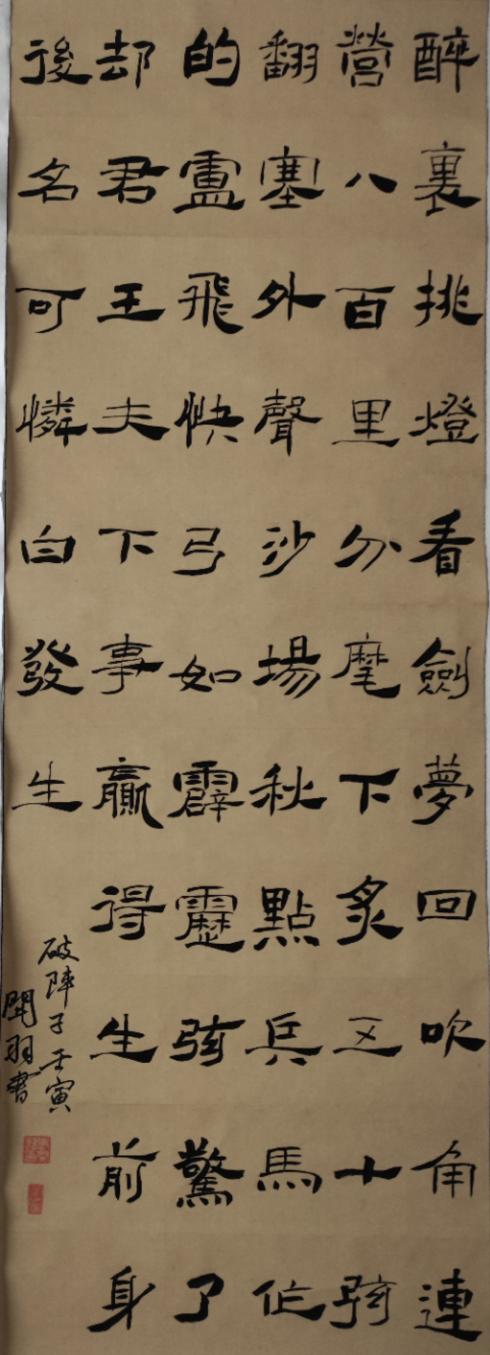 醉裏挑燈看劍夢回吹角連
營八百里分麾下炙五十弦
翻塞外聲沙場秋點兵馬作
的盧飛快弓如霹靂弦驚了
却君王天下事贏得生前身
後名可憐白發生
破陣子 壬寅
羽書